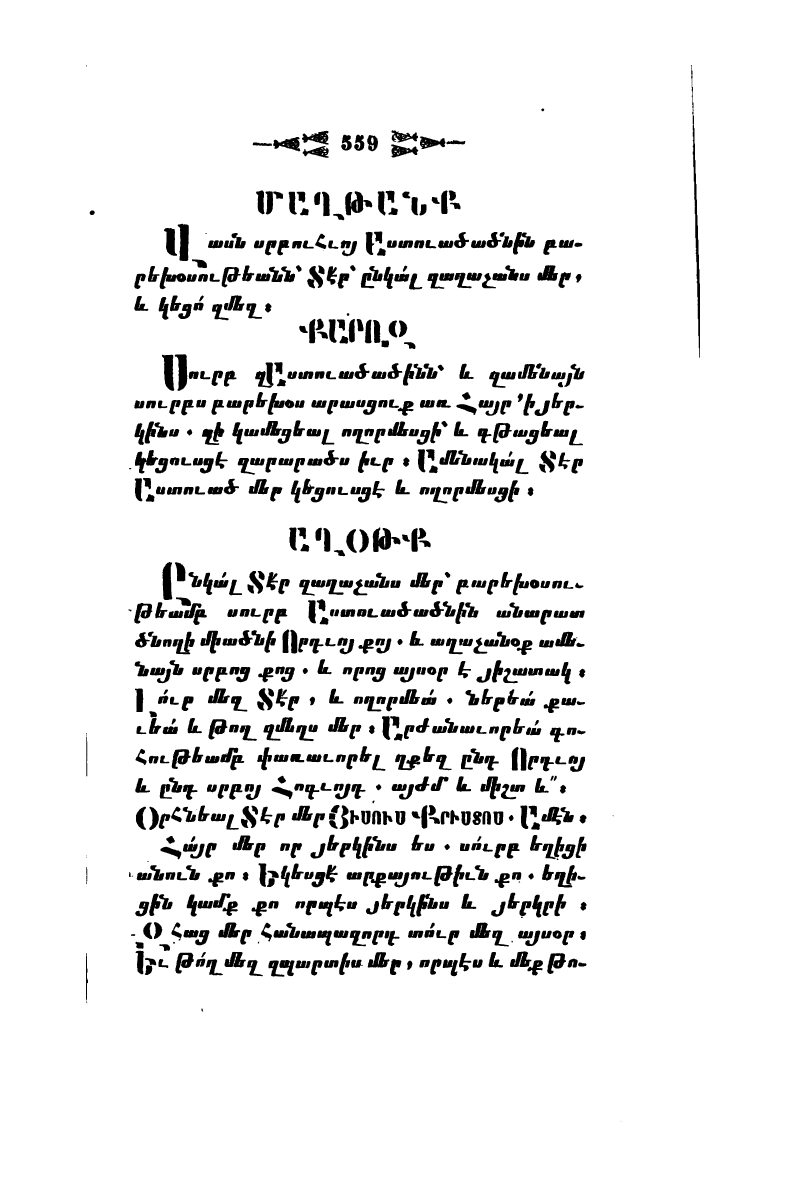 559
ՄԱՂԹԱՆՔ
Վասն սրբուհւոյ Աստուածածնին բա-
րեխօսութեանն՝ Տէր՝ ընկա՛լ զաղաչանս մեր,
և կեցո՛ զմեզ։
ՔԱՐՈԶ
Սուրբ զԱստուածածինն՝ և զամենայն
սուրբս բարեխօս արասցուք առ Հայր ՚ի յեր-
կինս. զի կամեցեալ ողորմեսցի՝ և գթացեալ
կեցուսցէ զարարածս իւր։ Ամենակա՛լ Տէր
Աստուած մեր կեցուսցէ և ողորմեսցի։
ԱՂՕԹՔ
Ընկա՛լ Տէր զաղաչանս մեր՝ բարեխօսու-
թեամբ սուրբ Աստուածածնին անարատ
ծնողի միածնի Որդւոյ քոյ. և աղաչանօք ամե-
նայն սրբոց քոց. և որոց այսօր է յիշատակ։
Լո՛ւր մեզ Տէր, և ողորմեա՛. ներեա՛ քա-
ւեա՛ և թող զմեղս մեր։ Արժանաւորեա՛ գո-
հութեամբ փառաւորել զքեզ ընդ Որդւոյ
և ընդ սրբոյ Հոգւոյդ. այժմ և միշտ և՟։
Օրհնեալ Տէր մեր ՅԻՍՈՒՍ ՔՐԻՍՏՈՍ. Ամէն։
Հայր մեր որ յերկինս ես. սուրբ եղիցի
անուն քո։ Եկեսցէ արքայութիւն քո. եղի-
ցին կամք քո որպէս յերկինս և յերկրի։
Զհաց մեր հանապազորդ տուր մեզ այսօր։
Եւ թո՛ղ մեզ զպարտիս մեր, որպէս և մեք թո-